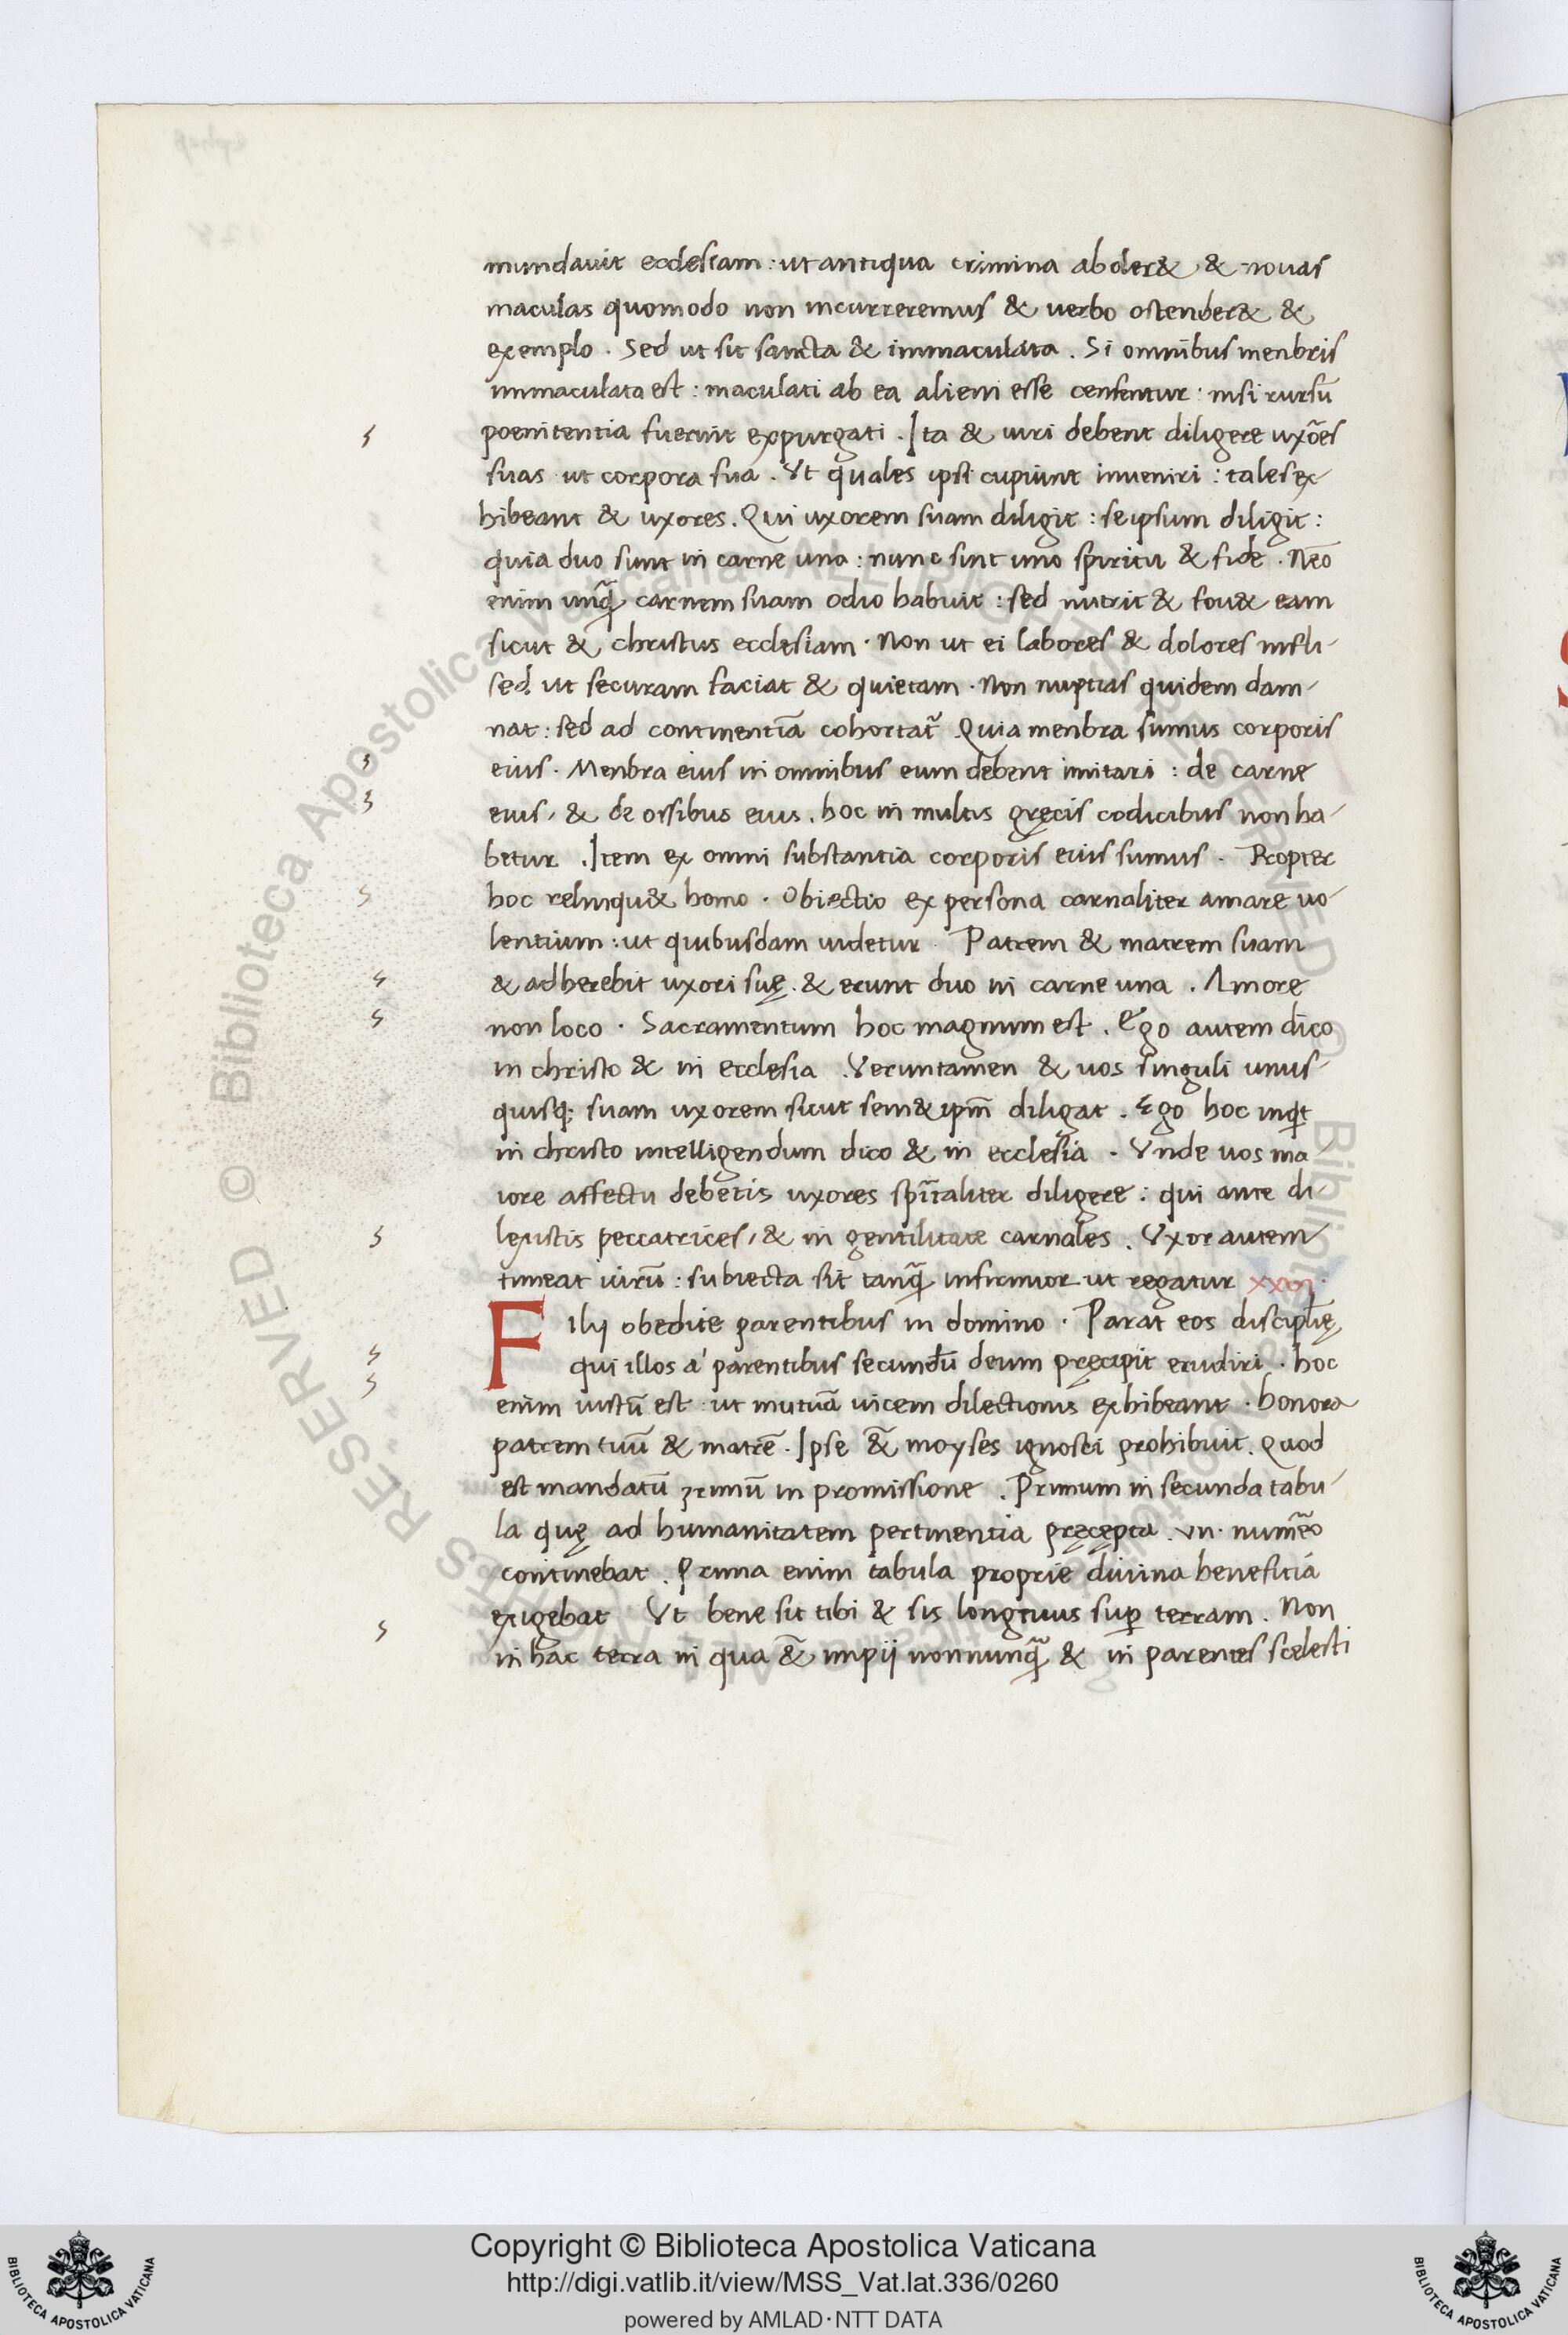 mundauit ecclesiam : ut antiqua crimina aboler& & nouas
maculas quomodo non incurreremus & uerbo ostender& &
exemplo . Sed ut sit sancta & immaculata . Si omnibus menbris
immaculata est : maculati ab ea alieni esse censentur : nisi rursũ
poenitentia fuerint expurgati . Ita & uiri debent diligere uxões
suas ut corpora sua . Vt quales ipsi cupiunt inueniri : tales ex-
hibeant & uxores . Qui uxorem suam diligit : se ipsum diligit :
quia duo sunt in carne una : nunc sint uno spiritu & fide . Nẽo
enim unq̃ carnem suam odio habuit : sed nutrit & fou& eam
sicut & christus ecclesiam . Non ut ei labores & dolores infli-
sed ut securam faciat & quietam . Non nuptias quidem dam-
nat : sed ad continentiã cohortat̃ Quia menbra sumus corporis
eius . Menbra eius in omnibus eum debent imitari : de carne
eius , & de ossibus eius . hoc in multis gręcis codicibus non ha-
betur . Item ex omni substantia corporis eius sumus . Propter
hoc relinqu& homo . Obiectio ex persona carnaliter amare uo-
lentium : ut quibusdam uidetur Patrem & matrem suam
& adherebit uxori suę . & erunt duo in carne una . Amore
non loco . Sacramentum hoc magnum est . Ego autem dico
in christo & in ecclesia . Veruntamen & uos singuli unus-
quisq; suam uxorem sicut sem& ipm̃ diligat . Ego hoc inq̃t
in christo intelligendum dico & in ecclesia . Vnde uos ma
iore affectu debetis uxores spĩtaliter diligere : qui ante di-
lexistis peccatrices , & in gentilitate carnales . Vxor autem
timeat uirũ : subiecta sit tanq̃ infirmior ut regatur
F ilij obedite parentibus in domino . Parat eos disciplĩę
qui illos a' parentibus secundũ deum pręcipit erudiri . hoc
enim iustũ est ut mutuã uicem dilectionis exhibeant . honora
patrem tuũ & matrẽ . Ipse &̃ moyses ignosci prohibuit . Quod
est mandatũ primũ in promissione . Primum in secunda tabu-
la quę ad humanitatem pertinentia pręcępta . VII . numẽo
continebat . Prima enim tabula proprie diuina beneficia
exigebat Vt bene sit tibi & sis longęuus sup̱ terram . Non
in hac terra in qua &̃ impij nonnunq̃ & in parentes scelesti
Copyright © Biblioteca Apostolica Vaticana
http://digi.vatlib.it/view/MSS_Vat.lat.336/0260
powered by AMLAD·NTT DATA
BIBLIOTECA APOSTOLICA VATICANA
BIBLIOTECA APOSTOLICA VATICANA